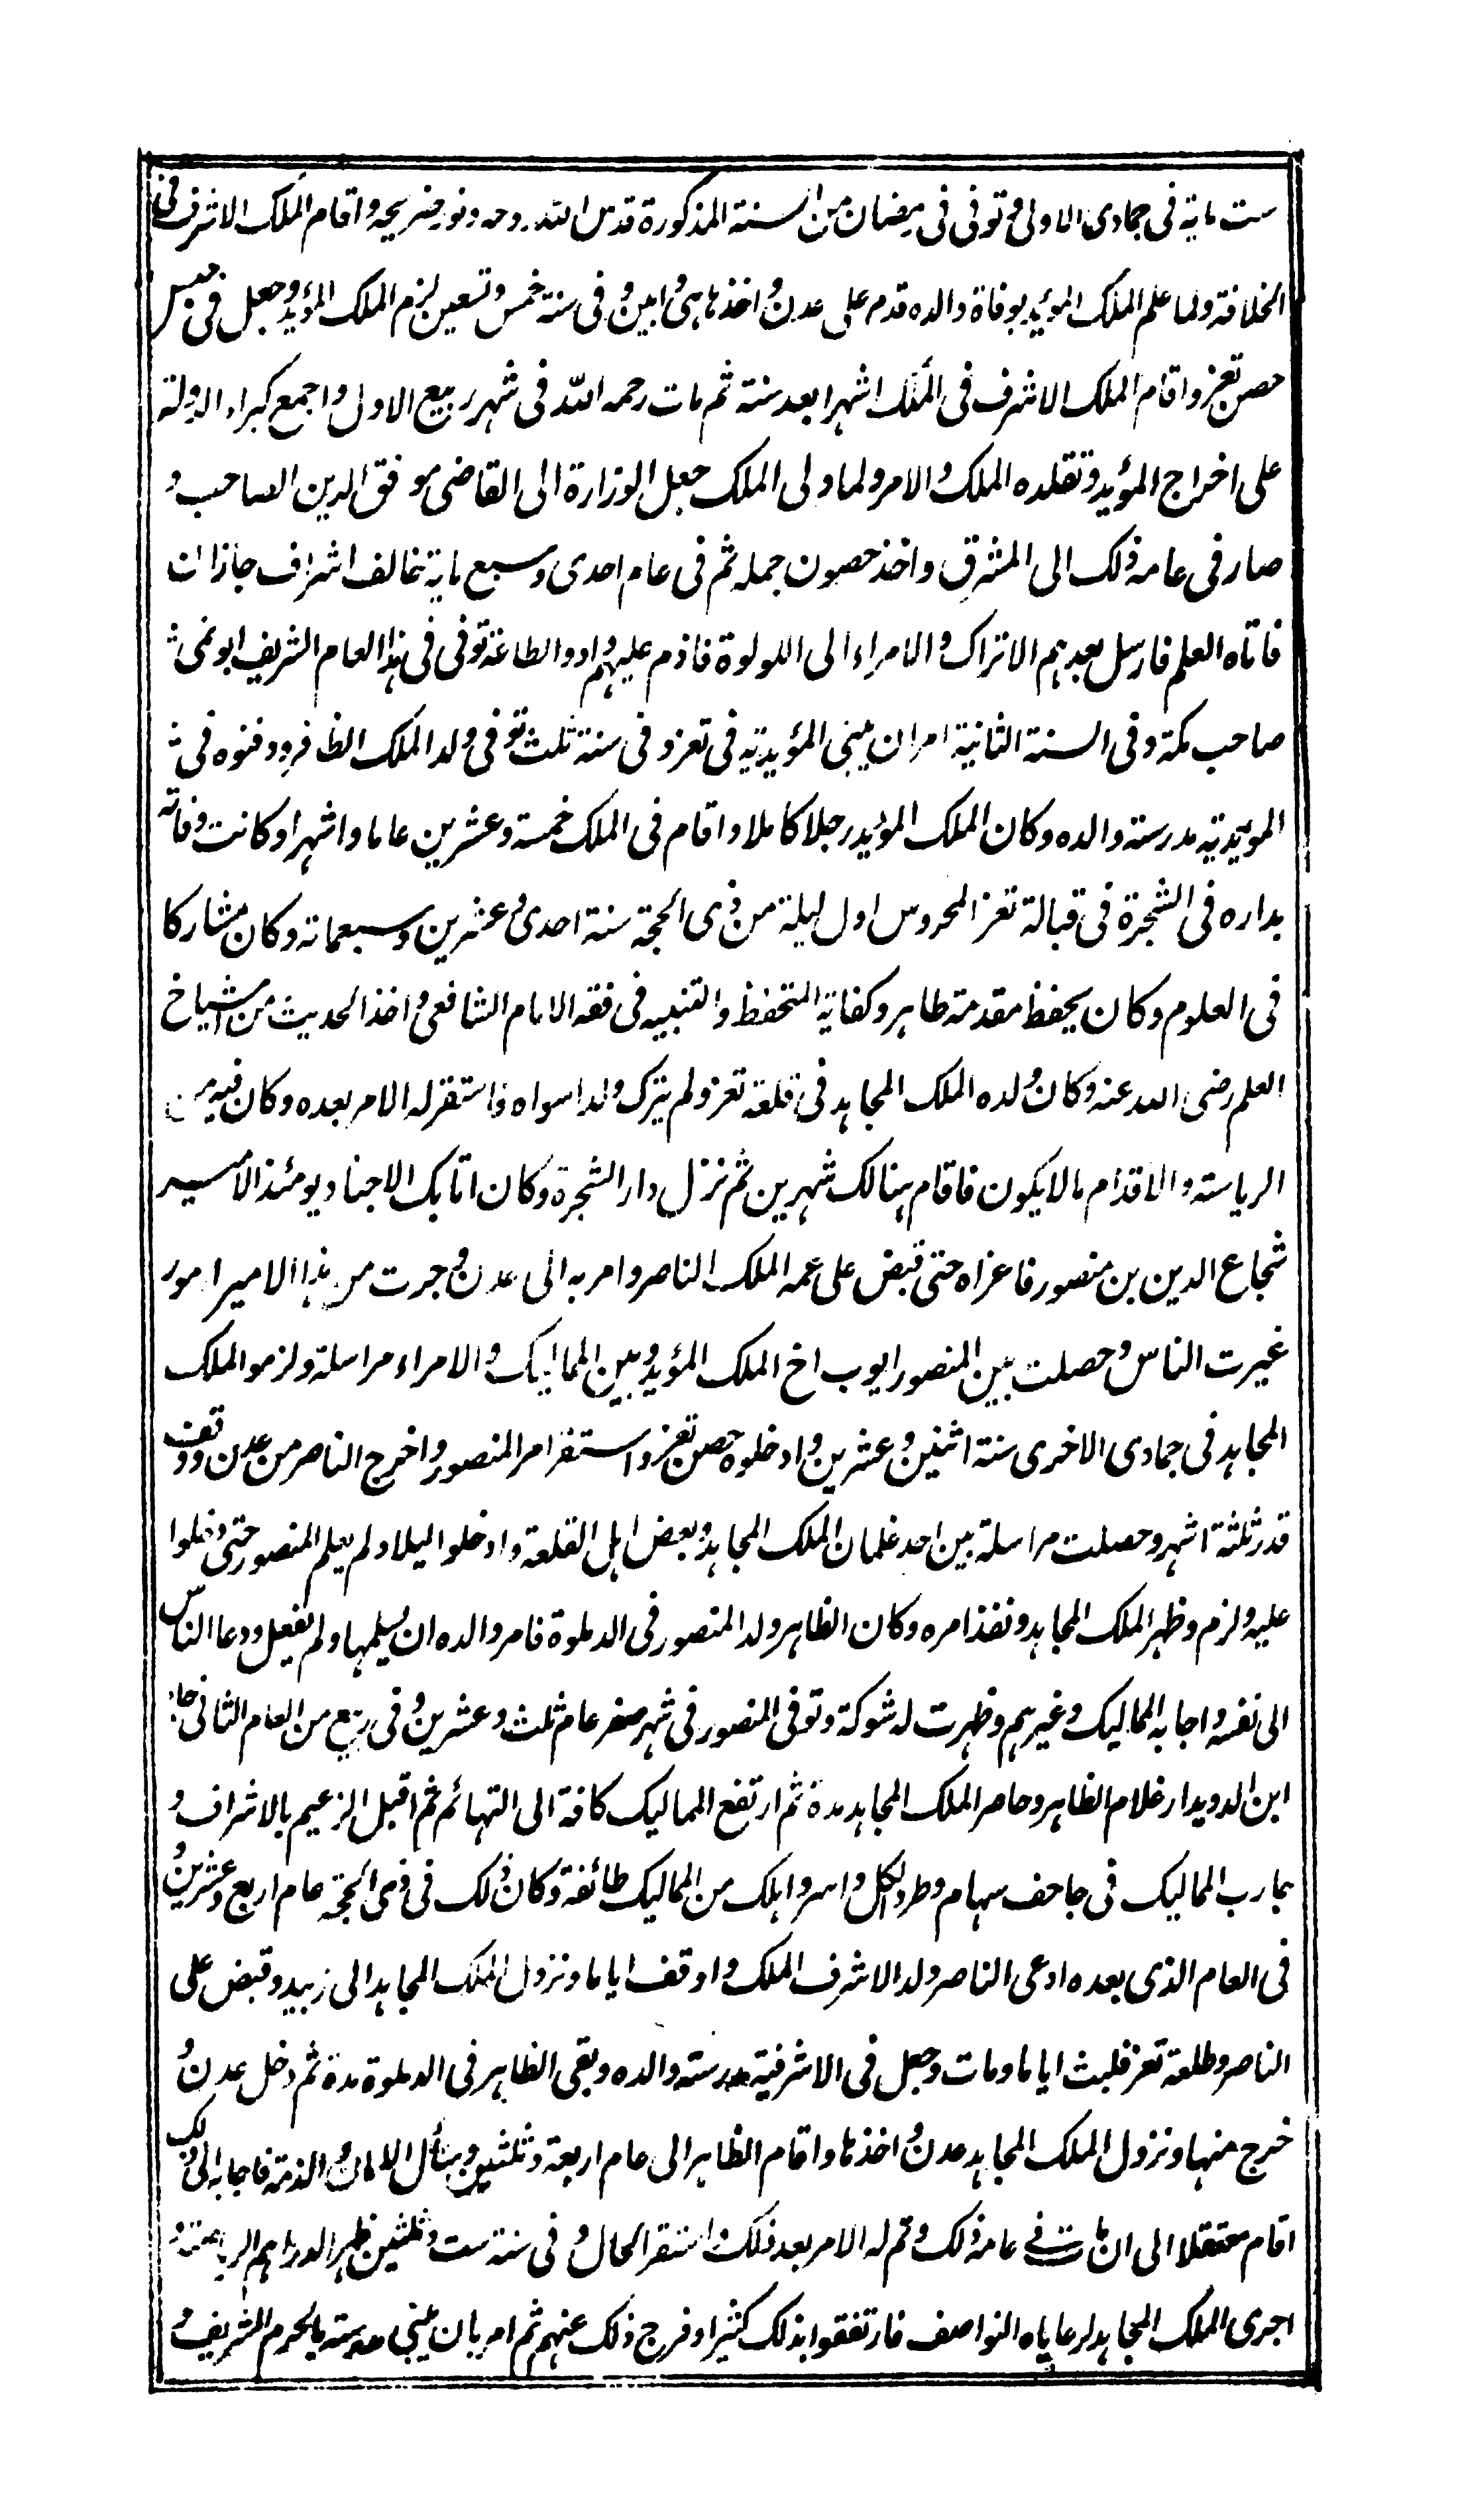 ست ماية فى جمادى الاولى و توفى فى رمضان من السنة المذكورة قدس الله روحه ونور ضريحه واقام الملك الاشرف فى
الخلافة ولما علم الملك المؤيد بوفاة والده قدم على عدن و اخذها هى و ابين و فى سنة خمس و تسعين لزم الملك المؤيد وجعل فى حبس
حصن تعز و اقام الملك الاشرف فى الملك اشهرا بعد سنة ثم مات رحمه الله فى شهر ربيع الاول و اجمع كبراء الدولة
على اخراج المؤيد و تقلده الملك و الامر ولما ولى الملك جعل الوزارة الى القاضى موفق الدين الصاحب و
صار فى عامه ذلك الى المشرق و اخذ حصون جمله ثم فى عام احدى و سبع ماية تخالف اشراف جازان
فاتاه العلم فارسل بعدهم الاتراك و الامراء الى اللولوة فاذم عليهم و ادوا الطاعة توفى فى هذا العام الشريف ابو نمى
صاحب مكة و فى السنة الثانية امر ان يبنى المؤيدية فى تعز و فى سنة ثلث توفى ولد الملك الظافر و دفنوه فى
المويدية مدرسة والده وكان الملك المؤيد رجلا كاملا و اقام فى الملك خمسة وعشرين عاما و اشهرا وكانت وفاته
بداره فى الشجرة فى قبالة تعز المحروس اول ليلة من ذى الحجة سنة احدى و عشرين و سبعماته وكان مشاركا
فى العلوم وكان يحفظ مقدمة طاهر و كفاية المتحفظ و التنبيه فى فقه الامام الشافعى و اخذ الحديث من اشياخ
العلم رضى الله عنه وكان ولده الملك المجاهد فى قلعة تعز ولم يترك ولدا سواه فاستقر له الامر بعده وكان فيه من
الرياسة و الاقدام ما لا يكون فاقام هنالك شهرين ثم نزل دار الشجرة وكان اتابك الاجناد يومئذ الامير
شجاع الدين بن منصور فاغراه حتى قبض على عمه الملك الناصر و امر به الى عدن و جرت من هذا الامير امور
غيرت الناس و حصلت بين المنصور ايوب اخ الملك المؤيد و بين المماليك و الامراء مراسلة ولزموا الملك
المجاهد فى جمادى الاخرى سنة اثنين و عشرين و ادخلوه حصن تعز و استقر امر المنصور و اخرج الناصر من عدن و وقف
قدر ثلثة اشهر و حصلت مراسلة بين احد غلمان الملك المجاهد و بعض اهل القلعة و ادخلوا ليلا ولم يعلم المنصور حتى دخلوا
عليه ولزم و ظهر الملك المجاهد ونفذ امره وكان الظاهر ولد المنصور فى الدملوة فامر والده ان يسلمها ولم يفعل ودعا الناس
الى نفسه و اجابه المماليك و غيرهم و ظهرت له شوكة و توفى المنصور فى شهر صفر عام ثلث و عشرين و فى ربيع من العام الثانى جاء
ابن الدويدار غلام الظاهر و حاصر الملك المجاهد مدة ثم ارتفع المماليك كافة الى التهائم ثم اقبل الزعيم بالاشراف و
يحارب المماليك فى جاحف سهام وطرد الكل و اسر و اهلك من المماليك طائفة وكان ذلك فى ذى الحجة عام اربع و عشرين و
فى العام الذى بعده ادعى الناصر ولد الاشرف الملك و اوقف اياما ونزول الملك المجاهد الى زبيد وقبض على
الناصر وطلعة تعز فلبث اياما ومات وجعل فى الاشرفية مدرسته والده وبقى الظاهر فى الدملوة مدة ثم دخل عدن و
خرج منها ونزول الملك المجاهد عدن و اخذها و اقام الظاهر الى عام اربعة و ثلثين و سأل الامان و الذمة فاجابه الى ذلك و
اقام معتقلا الى ان مات فى عامه ذلك و تم له الامر بعد ذلك و استقر الحال و فى سنة ست و ثلثين ظهر الدراهم الرياضية و
اجرى الملك المجاهد لرعاياه النواصف فارتفقوا بذلك كثيرا و فرج ذلك عنهم ثم امر بان يبنى مدرسته بالحرم الشريف و